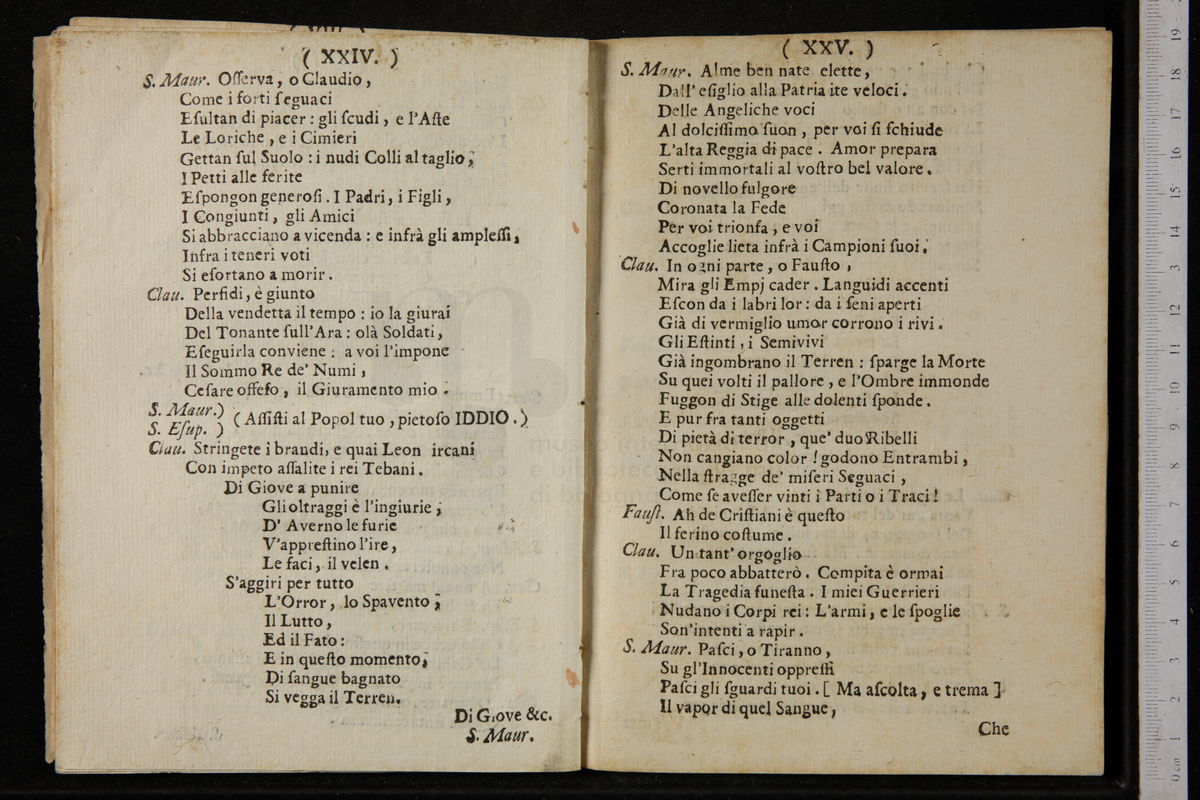 ( XXIV. )
S. Maur. Oſſerva, o Claudio,
Come i forti ſeguaci
Eſultan di piacer : gli ſcudi, e l'Aſte
Le Loriche, e i Cimieri
Gettan ſul Suolo : i nudi Colli al taglio;
I Petti alle ferite
Eſpongon generoſi. I Padri, i Figli,
I Congiunti, gli Amici
Si abbracciano a vicenda : e infrà gli ampleſſi,
Infra i teneri voti
Si eſortano a morir.
Clau. Perfidi, è giunto
Della vendetta il tempo : io la giurai
Del Tonante ſull'Ara : olà Soldati,
Eſeguirla conviene : a voi l'impone
Il Sommo Re de' Numi,
Ceſare offeſo, il Giuramento mio.
S. Maur.)
S. Eſup. ) (Aſſiſti al Popol tuo, pietoſo IDDIO.)
Clau. Stringete i brandi, e quai Leon ircani
Con impeto aſſalite i rei Tebani.
Di Giove a punire
Gli oltraggi è l'ingiurie;
D' Averno le furie
V'appreſtino l'ire,
Le faci, il velen.
S'aggiri per tutto
L'Orror, lo Spavento;
Il Lutto,
Ed il Fato:
E in queſto momento;
Di ſangue bagnato
Si vegga il Terren.
Di Giove &c.
S. Maur.
( XXV. )
S. Maur. Alme ben nate elette,
Dall' eſiglio alla Patria ite veloci.
Delle Angeliche voci
Al dolciſſimo ſuon, per voi ſi ſchiude
L'alta Reggia di pace. Amor prepara
Serti immortali al voſtro bel valore.
Di novello fulgore
Coronata la Fede
Per voi trionfa, e voi
Accoglie lieta infrà i Campioni ſuoi.
Clau. In ogni parte, o Fauſto,
Mira gli Empj cader. Languidi accenti
Eſcon da i labri lor : da i ſeni aperti
Già di vermiglio umor corrono i rivi.
Gli Eſtinti, i Semivivi
Già ingombrano il Terren : ſparge la Morte
Su quei volti il pallore, e l'Ombre immonde
Fuggon di Stige alle dolenti ſponde.
E pur fra tanti oggetti
Di pietà di terror, que' duo Ribelli
Non cangiano color! godono Entrambi,
Nella ſtragge de' miſeri Seguaci,
Come ſe aveſſer vinti i Parti o i Traci!
Fauſt. Ah de Criſtiani è queſto
Il ferino coſtume.
Clau. Un tant' orgoglio
Fra poco abbatterò. Compita è ormai
La Tragedia funeſta. I miei Guerrieri
Nudano i Corpi rei : L'armi, e le ſpoglie
Son'intenti a rapir.
S. Maur. Paſci, o Tiranno,
Su gl'Innocenti oppreſſi
Paſci gli ſguardi tuoi. [ Ma aſcolta, e trema ]
Il vapor di quel Sangue,
Che